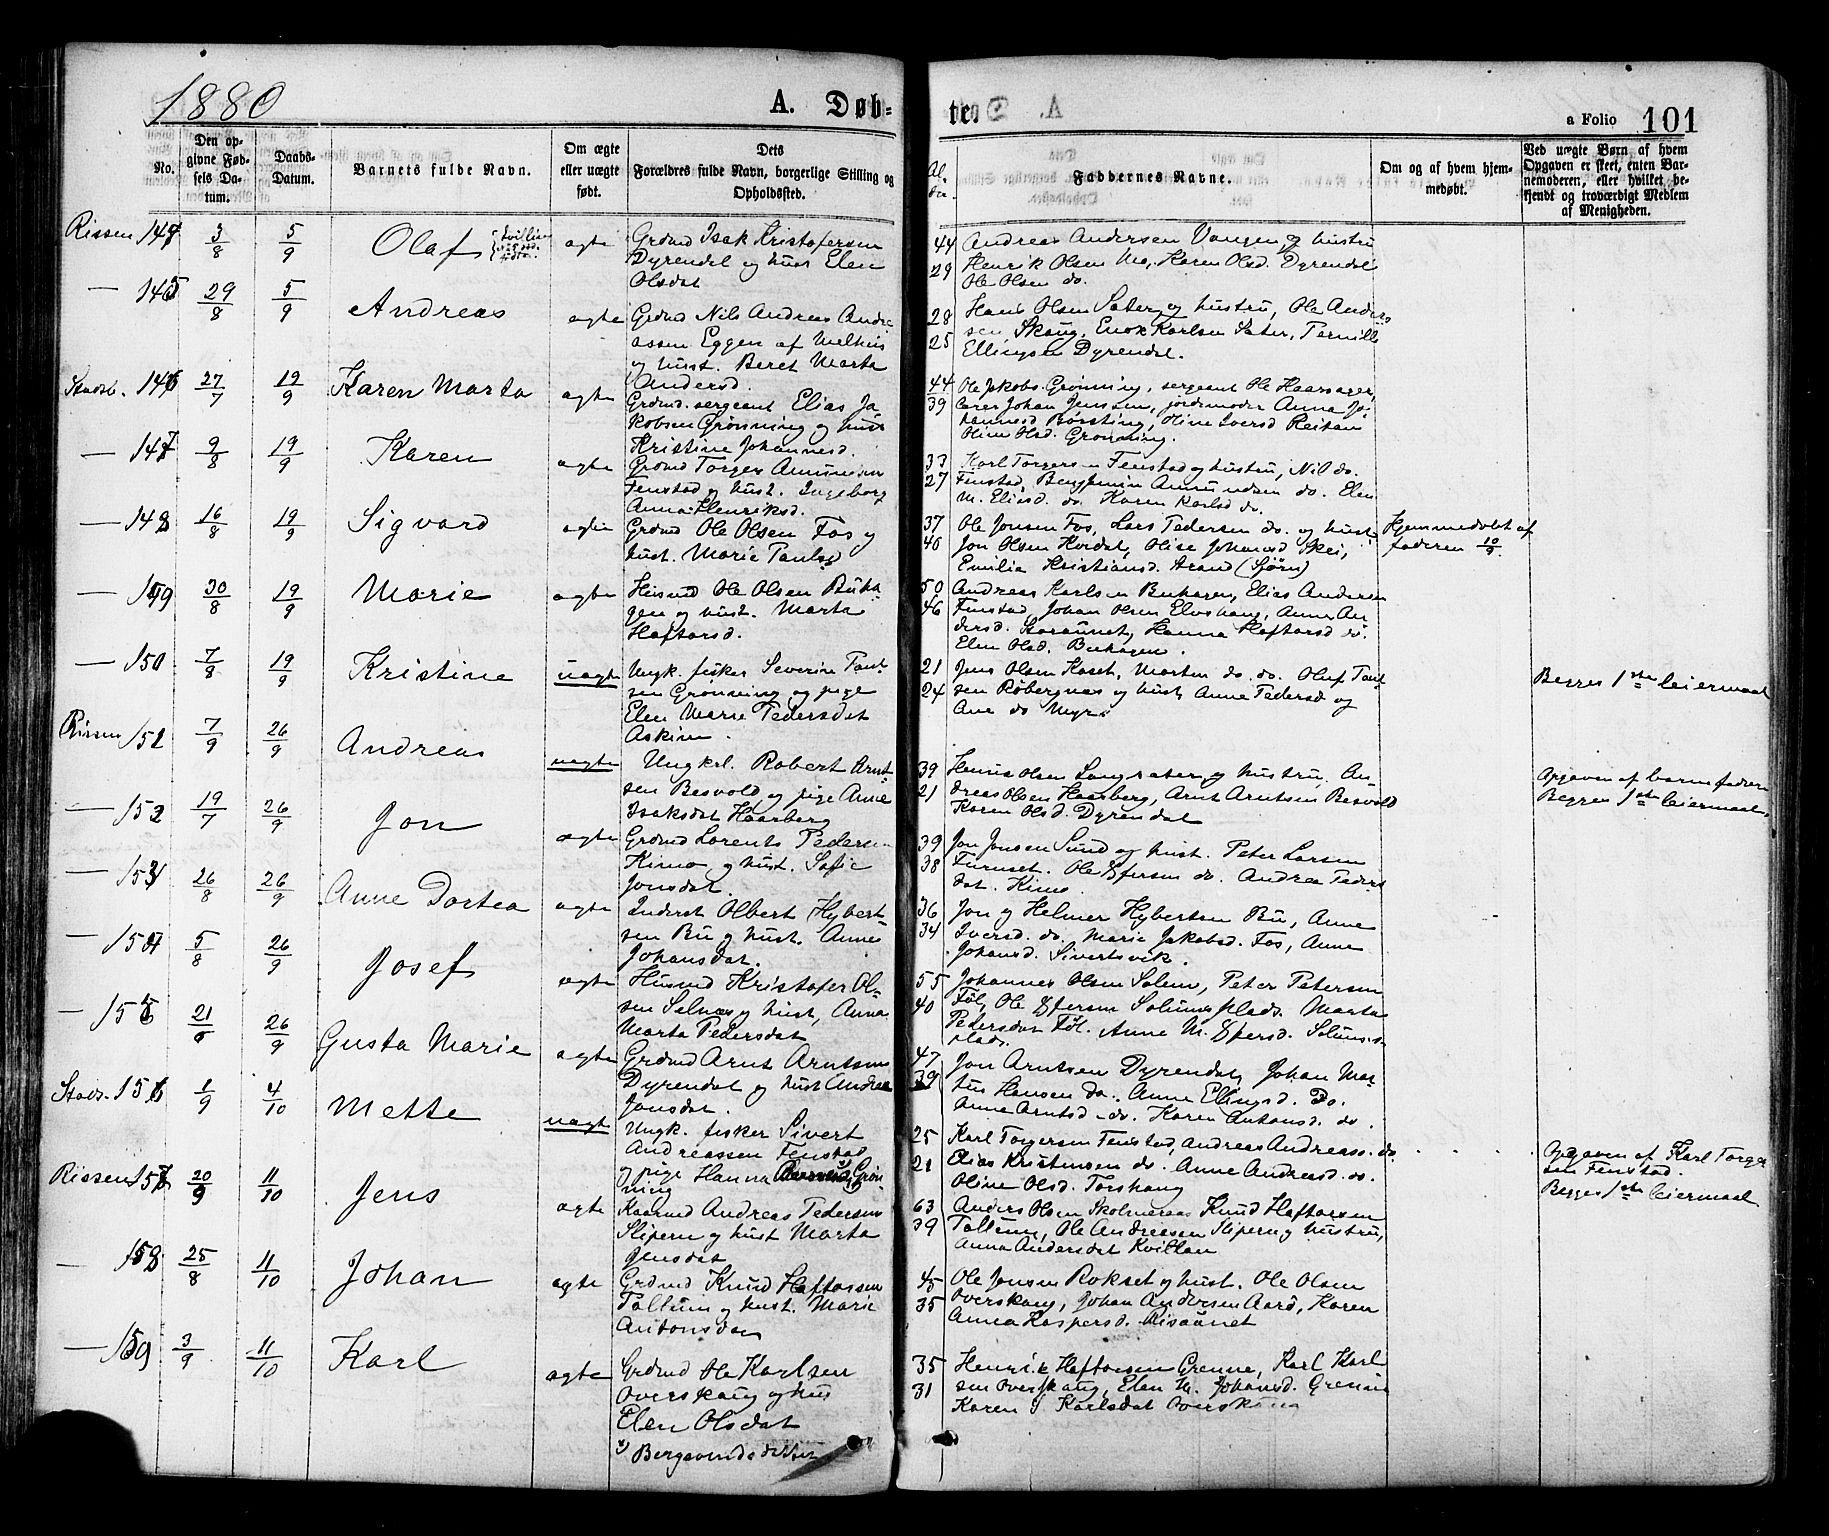 1880
A. Døb-
te.
a Folio 101
No.
Den op-
givne Fød-
sels Da-
tum.
Daabs-
Datum.
Barnets fulde Navn.
Om ægte
eller uægte
født.
Dets
Forældres fulde Navn, borgerlige Stilling og
Opholdssted.
Al-
der
Faddernes Navne.
Om og af hvem hjem-
medøbt.
Ved uægte Børn af hvem
Opgaven er skeet, enten Bar-
nemoderen, eller hvilket be-
kjendt og troværdigt Medlem
af Menigheden.
Rissen 144 3/8 5/9 Olaf ægte
Grdmd Isak Kristofersen
Dyrendal og hust Elen
Olsdat
44 Andreas Andersen Vongen og hustru
29 Henrik Olsen Mo, Karen Olsd. Dyrendal
Ole Olsen do.
— 145 29/8 5/9 Andreas ægte
Grdmd Nils Andreas Andre-
assen Eggen af Melhus
og hust. Beret Marta
Andersd.
28 Hans Olsen Sæter og hustru, Ole Anders
25 sen Skaug, Enok Karlsen Sæter, Pernille
Ellingsen Dyrendal.
Stadsb. 146 27/7 19/9 Karen Marta ægte
Grdmd. sergeant Elias Ja-
kobsen Grønning og hust
Kristine Johannesd.
44 Ole Jakobs. Grønning, sergeant Ole Haarsager,
39 lærer Johan Jenssen, jordemoder Anna Jo-
hannesd Børsting, Oline Iversd Reitan
Oline Olsd. Grønning.
— 147 9/8 19/9 Karen ægte
Grdmd Torger Amundsen
Fenstad og hust. Ingeborg
Anna Henriksd.
33 Karl Torgersen Fenstad og hustru, Nil do.
27 Fenstad, Benjamin Amundsen do. Elen
M. Eliasd. do. Karen Karlsd do.
— 148 16/8 19/9 Sigvard ægte
Grdmd Ole Olsen Fos og
hust. Marie Paulsd
37 Ole Jonsen Fos, Lars Pedersen do. og hust.
40 Jon Olsen Hvidal, Olise Johansd Skei,
Emilia Kristiansd. Strand (Bjørn)
Hjemmedøbt af
faderen 10/9.
— 149 30/8 19/9 Marie ægte
Husmd Ole Olsen Buha-
gen og hust. Marta
Haftorsd.
50 Andreas Karlsen Buhagen, Elias Andersen
46 Fenstad, Johan Olsen Elvehaug, Anne An-
dersd. Staraunet, Hanna Haftorsd do.
Elen Olsd. Buhagen.
— 150 7/8 19/9 Kristine uægte
Ungk. fisker Severin Paul-
sen Grønning og pige
Elen Marie Pedersdat
Askim.
21 Jens Olsen Haset, Morten do. do. Oluf Paul-
24 sen Røbergnæs og hust, Anne Pedersd og
Ane do Myr.
Begges 1ste leiermaal
Rissen 151 7/9 26/9 Andreas uægte
Ungkrl. Robert Arnt-
sen Besvold og pige Anne
Isaksdat Haarberg
39 Henrik Olsen Langsæter og hustru, An-
21 dreas Olsen Haarberg, Arnt Arntsen Besvold
Karen Olsd. Dyrendal
Opgaven af barnefaderen
Begges 1ste leiermaal.
— 152 19/7 26/9 Jon ægte
Grdmd Lorents Pedersen
Kimo og hust. Sofie
Jonsdat.
39 Jon Jonsen Sund og hust. Peter Larsen
38 Furuset. Ole Efersen do. Andrea Peders
dat. Kimo.
— 153 26/8 26/9 Anne Dortea ægte
Inderst Olbert Hybert-
sen Bu og hust. Anne
Johansdat.
36 Jon og Helmer Hybertsen Bu, Anne
34 Iversd. do. Marie Jakobsd. Fos, Anne
Johansd. Sivertsvik.
— 154 5/8 26/9 Josef ægte
Husmd Kristofer Ol-
sen Selnæs og hust, Anna
Marta Pedersdat
55 Johannes Olsen Solem, Peter Petersen
40 Føl, Ole Efersen Solumsplads. Marta
Pedersdat Føl. Anne M. Efersd. Solums-
plads.
— 155 21/6 26/9 Gusta Marie ægte
Grdmd Arnt Arntsen
Dyrendal og hust Andrea
Jonsdat.
47 Jon Arntsen Dyrendal, Johan Mar-
39 tus Hansen do. Anne Ellingsd. Do.
Anne Arntsd do. Karen Antonsd. do.
Stads. 156 1/9 4/10 Mette uægte
Ungk. fisker Sivert
Andreassen Fenstad
og pige Hanna Grøn-
ning
25 Karl Torgersen Fenstad, Andreas Andreass. do.
21 Elias Kristensen do. Anne Andreasd. do.
Oline Olsd. Torshaug
Opgaven af Karl Torger
sen Fenstad.
Begges 1ste leiermaal
Rissen 157 20/9 11/10 Jens ægte
Kaarmd Andreas Pedersen
Slipern og hust Marta
Jensdat
63 Anders Olsen Skolmeraas Knud Haftorsen
39 Tallum, Ole Andreassen Slipern og hustru,
Anna Andersdat Kvittan
— 158 25/8 11/10 Johan ægte
Grdmd Knud Haftorsen
Tallum og hust. Marie
Antonsdat
45 Ole Jonsen Rokset og hust. Ole Olsen
35 Overskaug, Johan Andersen Aard, Karen
Anna Kaspersd. Risaunet
— 159 3/9 11/10 Karl ægte
Grdmd Ole Karlsen
Overskaug og hus
Elen Olsdat
35 Henrik Haftorsen Grenne, Karl Karl
31 sen Overskaug, Elen M. Johansd. Grenne
Karen J Karlsdat Overskaug
x) Bergsvendsdatter